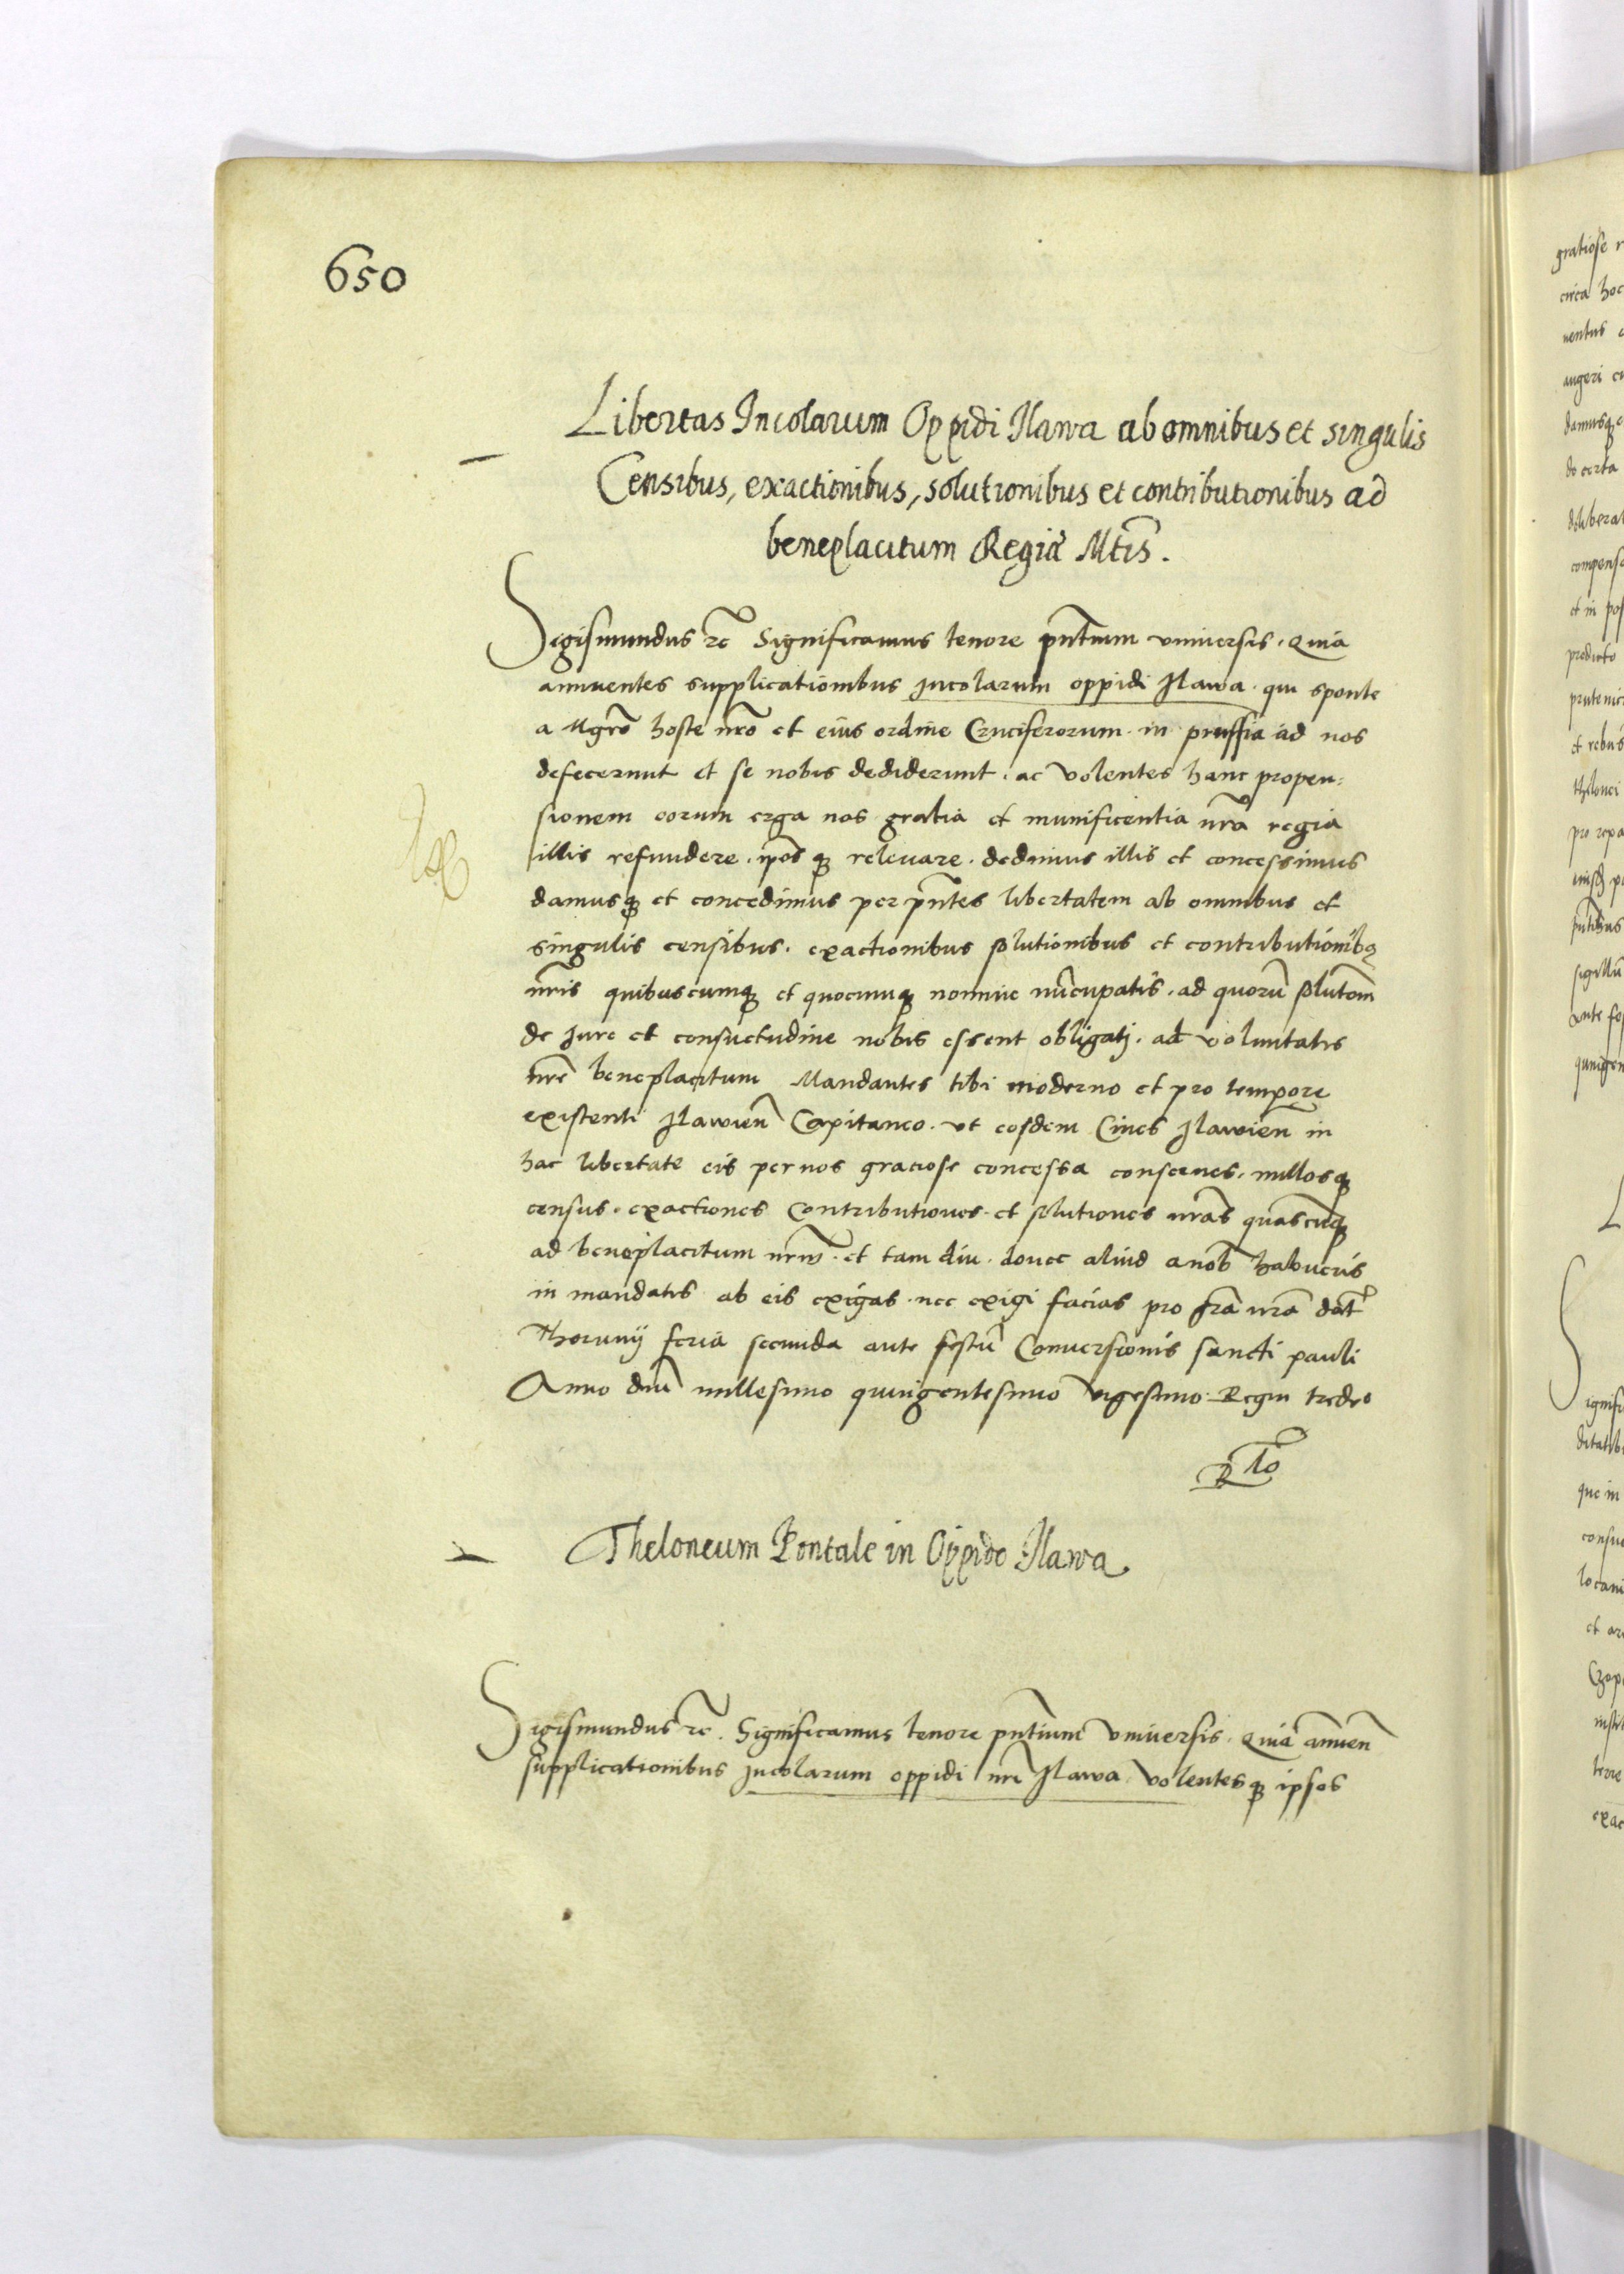 650
Libertas Incolarum Oppidi Ilawa ab omnibus et singulis
Censibus, exactionibus, solutionibus et contributionibus ad
beneplacitum Regiæ Mtis.
Sigismundus rc Significamus tenore pntium vniuersis. Quia
annuentes supplicationibus Incolarum oppidi Ilawa. qui sponte
a Mgro hoste nro et eius ordine Cruciferorum in prussia ad nos
defecerunt et se nobis dediderunt. ac volentes hanc propen:
sionem eorum erga nos gratia et munificentia nra regia
illis refundere. ipos que releuare. dedimus illis et concessimus
damusque et concedimus per pntes libertatem ab omnibus et
singulis censibus. exactionibus solutionibus et contributionibq
nris quibuscumque et quocumque nomine nucupatis. ad quoru solutom
de Iure et consuetudine nobis essent obligatj. ad voluntatis
nre beneplacitum Mandantes tibi moderno et pro tempore
existenti Ilawien Capitaneo. vt eosdem Ciues Ilawien in
hac libertate eis per nos graciose concessa conserues. nullosque
census. exactiones Contributiones et solutiones nras quascuque
ad beneplacitum nrm. et tam diu. donec aliud a nob habueris
in mandatis ab eis exigas nec exigi facias pro gra nra dat
Thorunij feria secunda ante festu Conuersionis sancti pauli
Anno dni millesimo quingentesimo vigesimo Regni
Rlo
Theloneum Pontale in Oppido Ilawa
Sigismundus rc. Significamus tenore pntium vniuersis. Quia annuen
supplicationibus Incolarum oppidi nri Ilawa volentesque ipsos